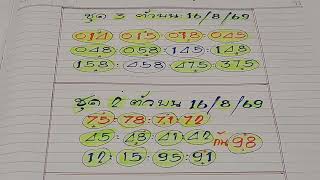 ชุด 3 ตัวบน 16/8/69
014 015 018 045
048 058 145 148
158 458 475 375
ชุด 2 ตัวบน 16/8/69
75 78 71 72
45 48 41 42 กัน 98
12 15 95 91